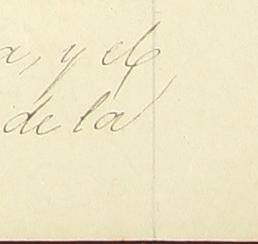 a, y el
de la